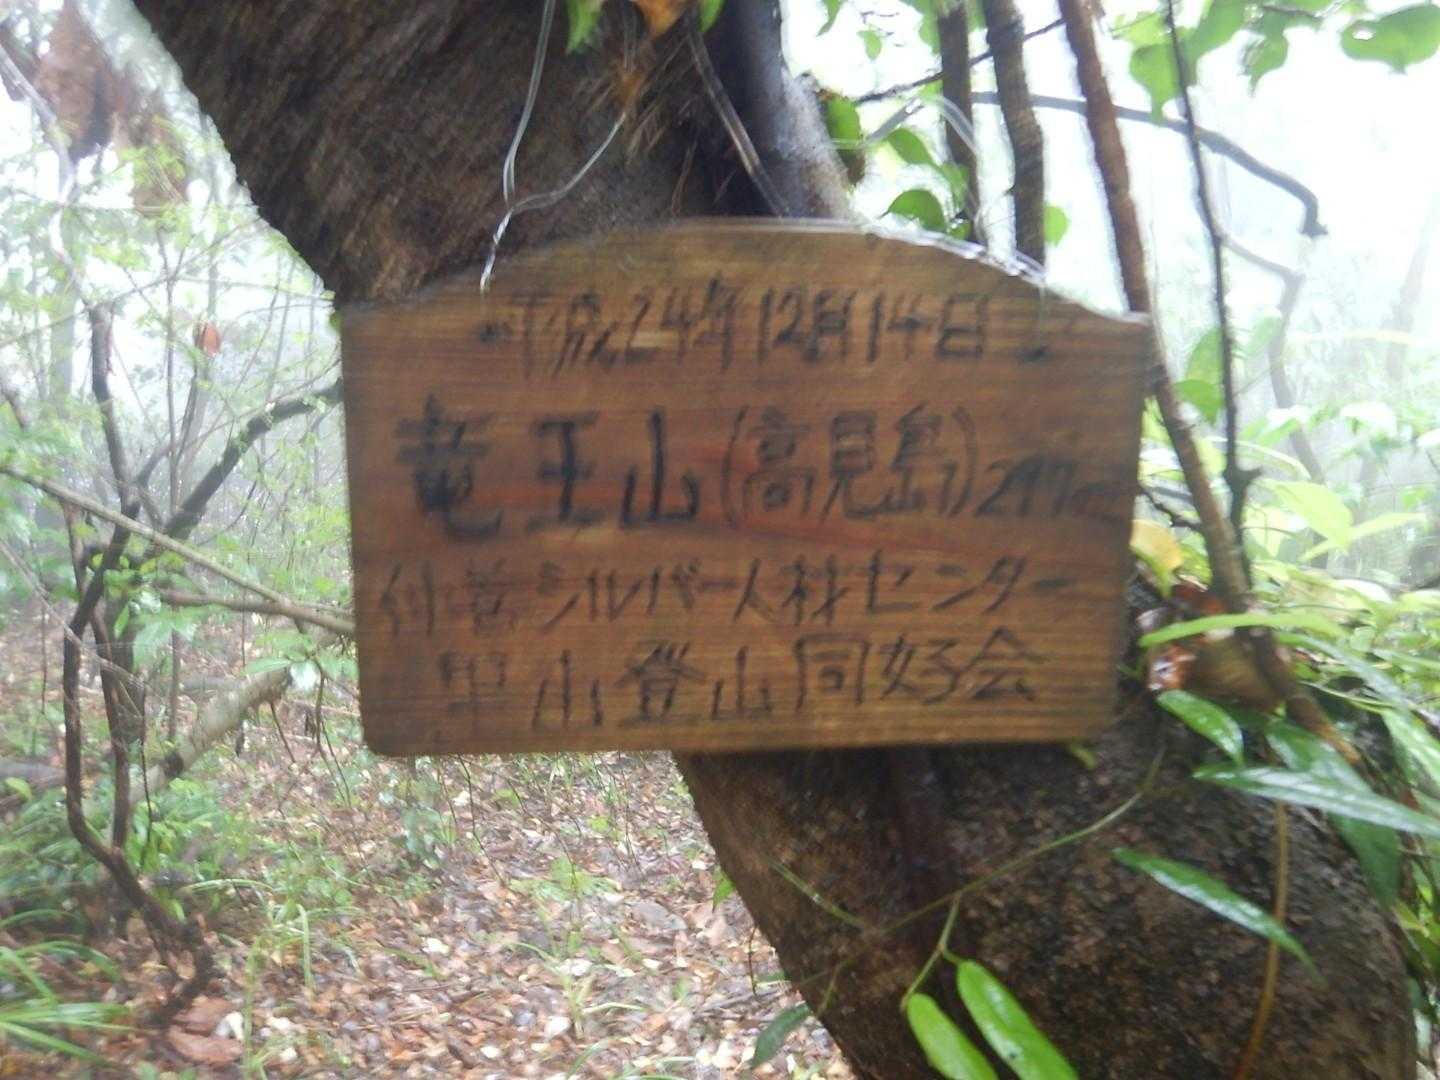 平成24年12月14日
竜王山(高見島)297m
シルバー人材センター
里山登山同好会